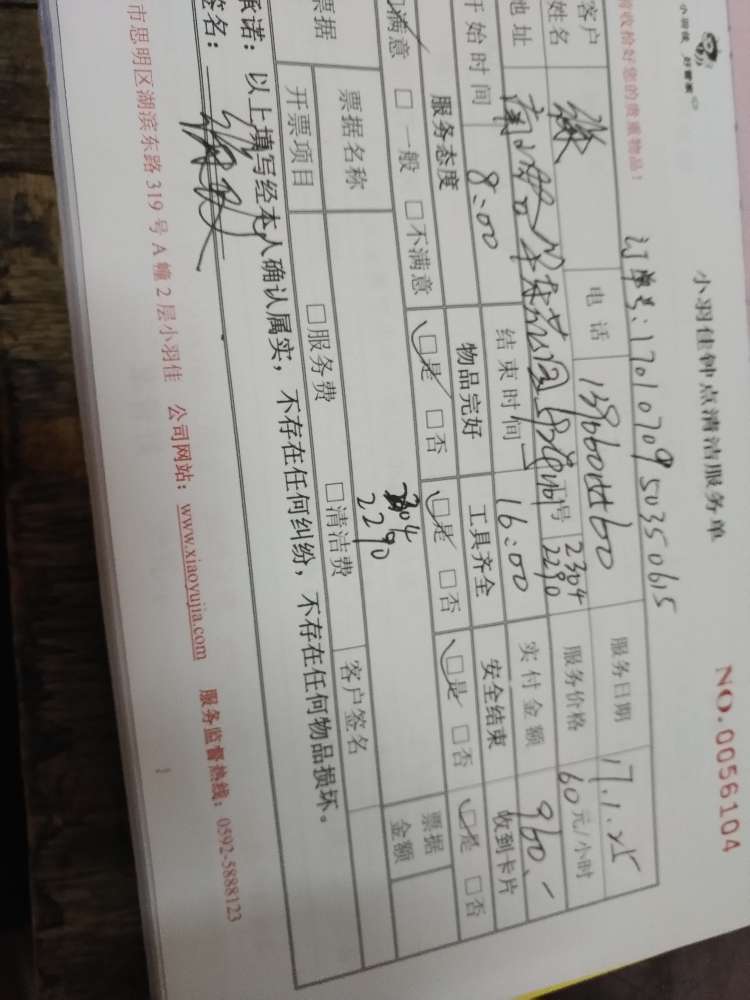 小羽佳 好管家
小羽佳钟点清洁服务单
NO.0056104
收检好您的贵重物品！
订单号：1701070950350615
客户姓名
电话
服务日期 17.1.25
地址
号 2304 2290
服务价格 60元/小时
开始时间 8:00 结束时间 16:00 实付金额 960.-
服务态度 物品完好 工具齐全 安全结束 收到卡片
满意 □一般 □不满意 □是 □否 □是 □否 □是 □否 □是 □否
票据
票据名称
2304
2290
客户签名
票据金额
开票项目 □服务费 □清洁费
承诺：以上填写经本人确认属实，不存在任何纠纷，不存在任何物品损坏。
签名：
市思明区湖滨东路319号A幢2层小羽佳 公司网站：www.xiaoyujia.com 服务监督热线：0592-5888123